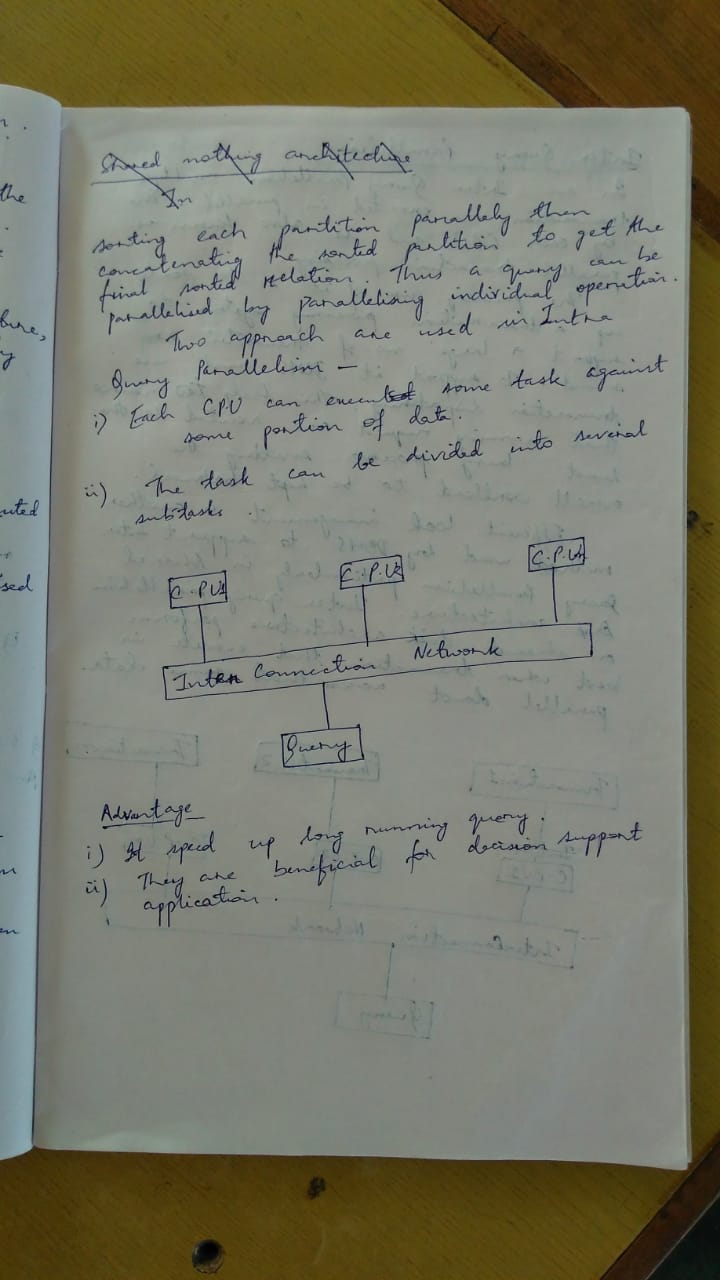 Shared nothing architecture
In
sorting each partition parallely then
concatenating the sorted partition to get the
final sorted relation. Thus a query can be
parallelised by parallelising individual operation.
Two approach are used in Intra
Query Parallelism —
i) Each CPU can execute some task against
some portion of data.
ii) The task can be divided into several
subtasks.
C.P.U1
C.P.U2
C.P.Un
Inter Connection Network
Query
Advantage
i) It speed up long running query.
ii) They are beneficial for decision support
application.
the
uted
sed